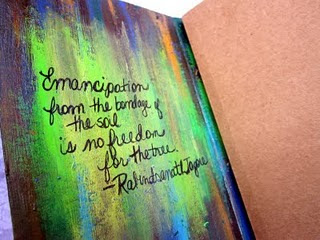 Emancipation
from the bondage of
the soil
is no freedom
for the tree.
- Rabindranath Tagore